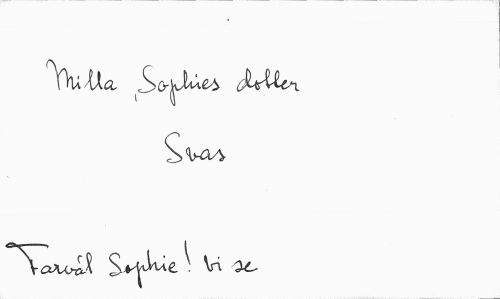 Milla, Sophies dotter
Svas
Farväl Sophie! vi se